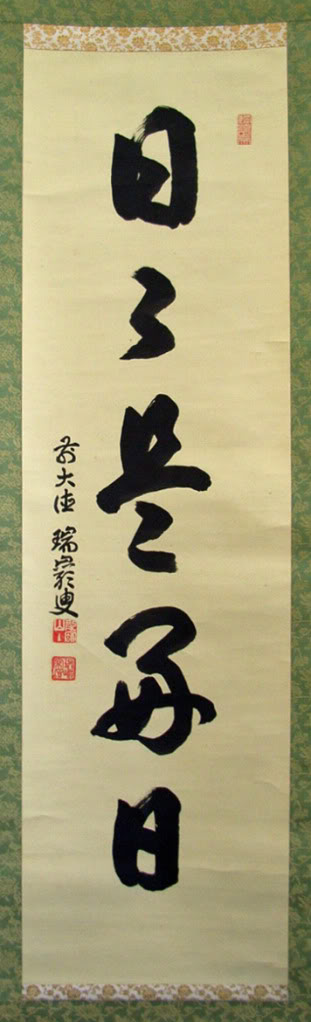 日々是好日
前大徳 瑞巌叟